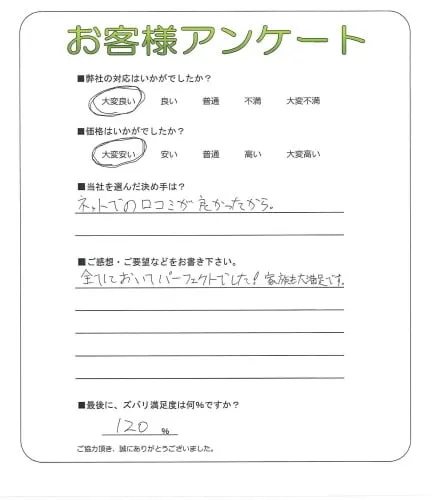 お客様アンケート
■弊社の対応はいかがでしたか？
大変良い 良い 普通 不満 大変不満
■価格はいかがでしたか？
大変安い 安い 普通 高い 大変高い
■当社を選んだ決め手は？
ネットでの口コミが良かったから。
■ご感想・ご要望などをお書き下さい。
全てにおいてパーフェクトでした！家族も大満足です。
■最後に、ズバリ満足度は何％ですか？
120 ％
ご協力頂き、誠にありがとうございました。